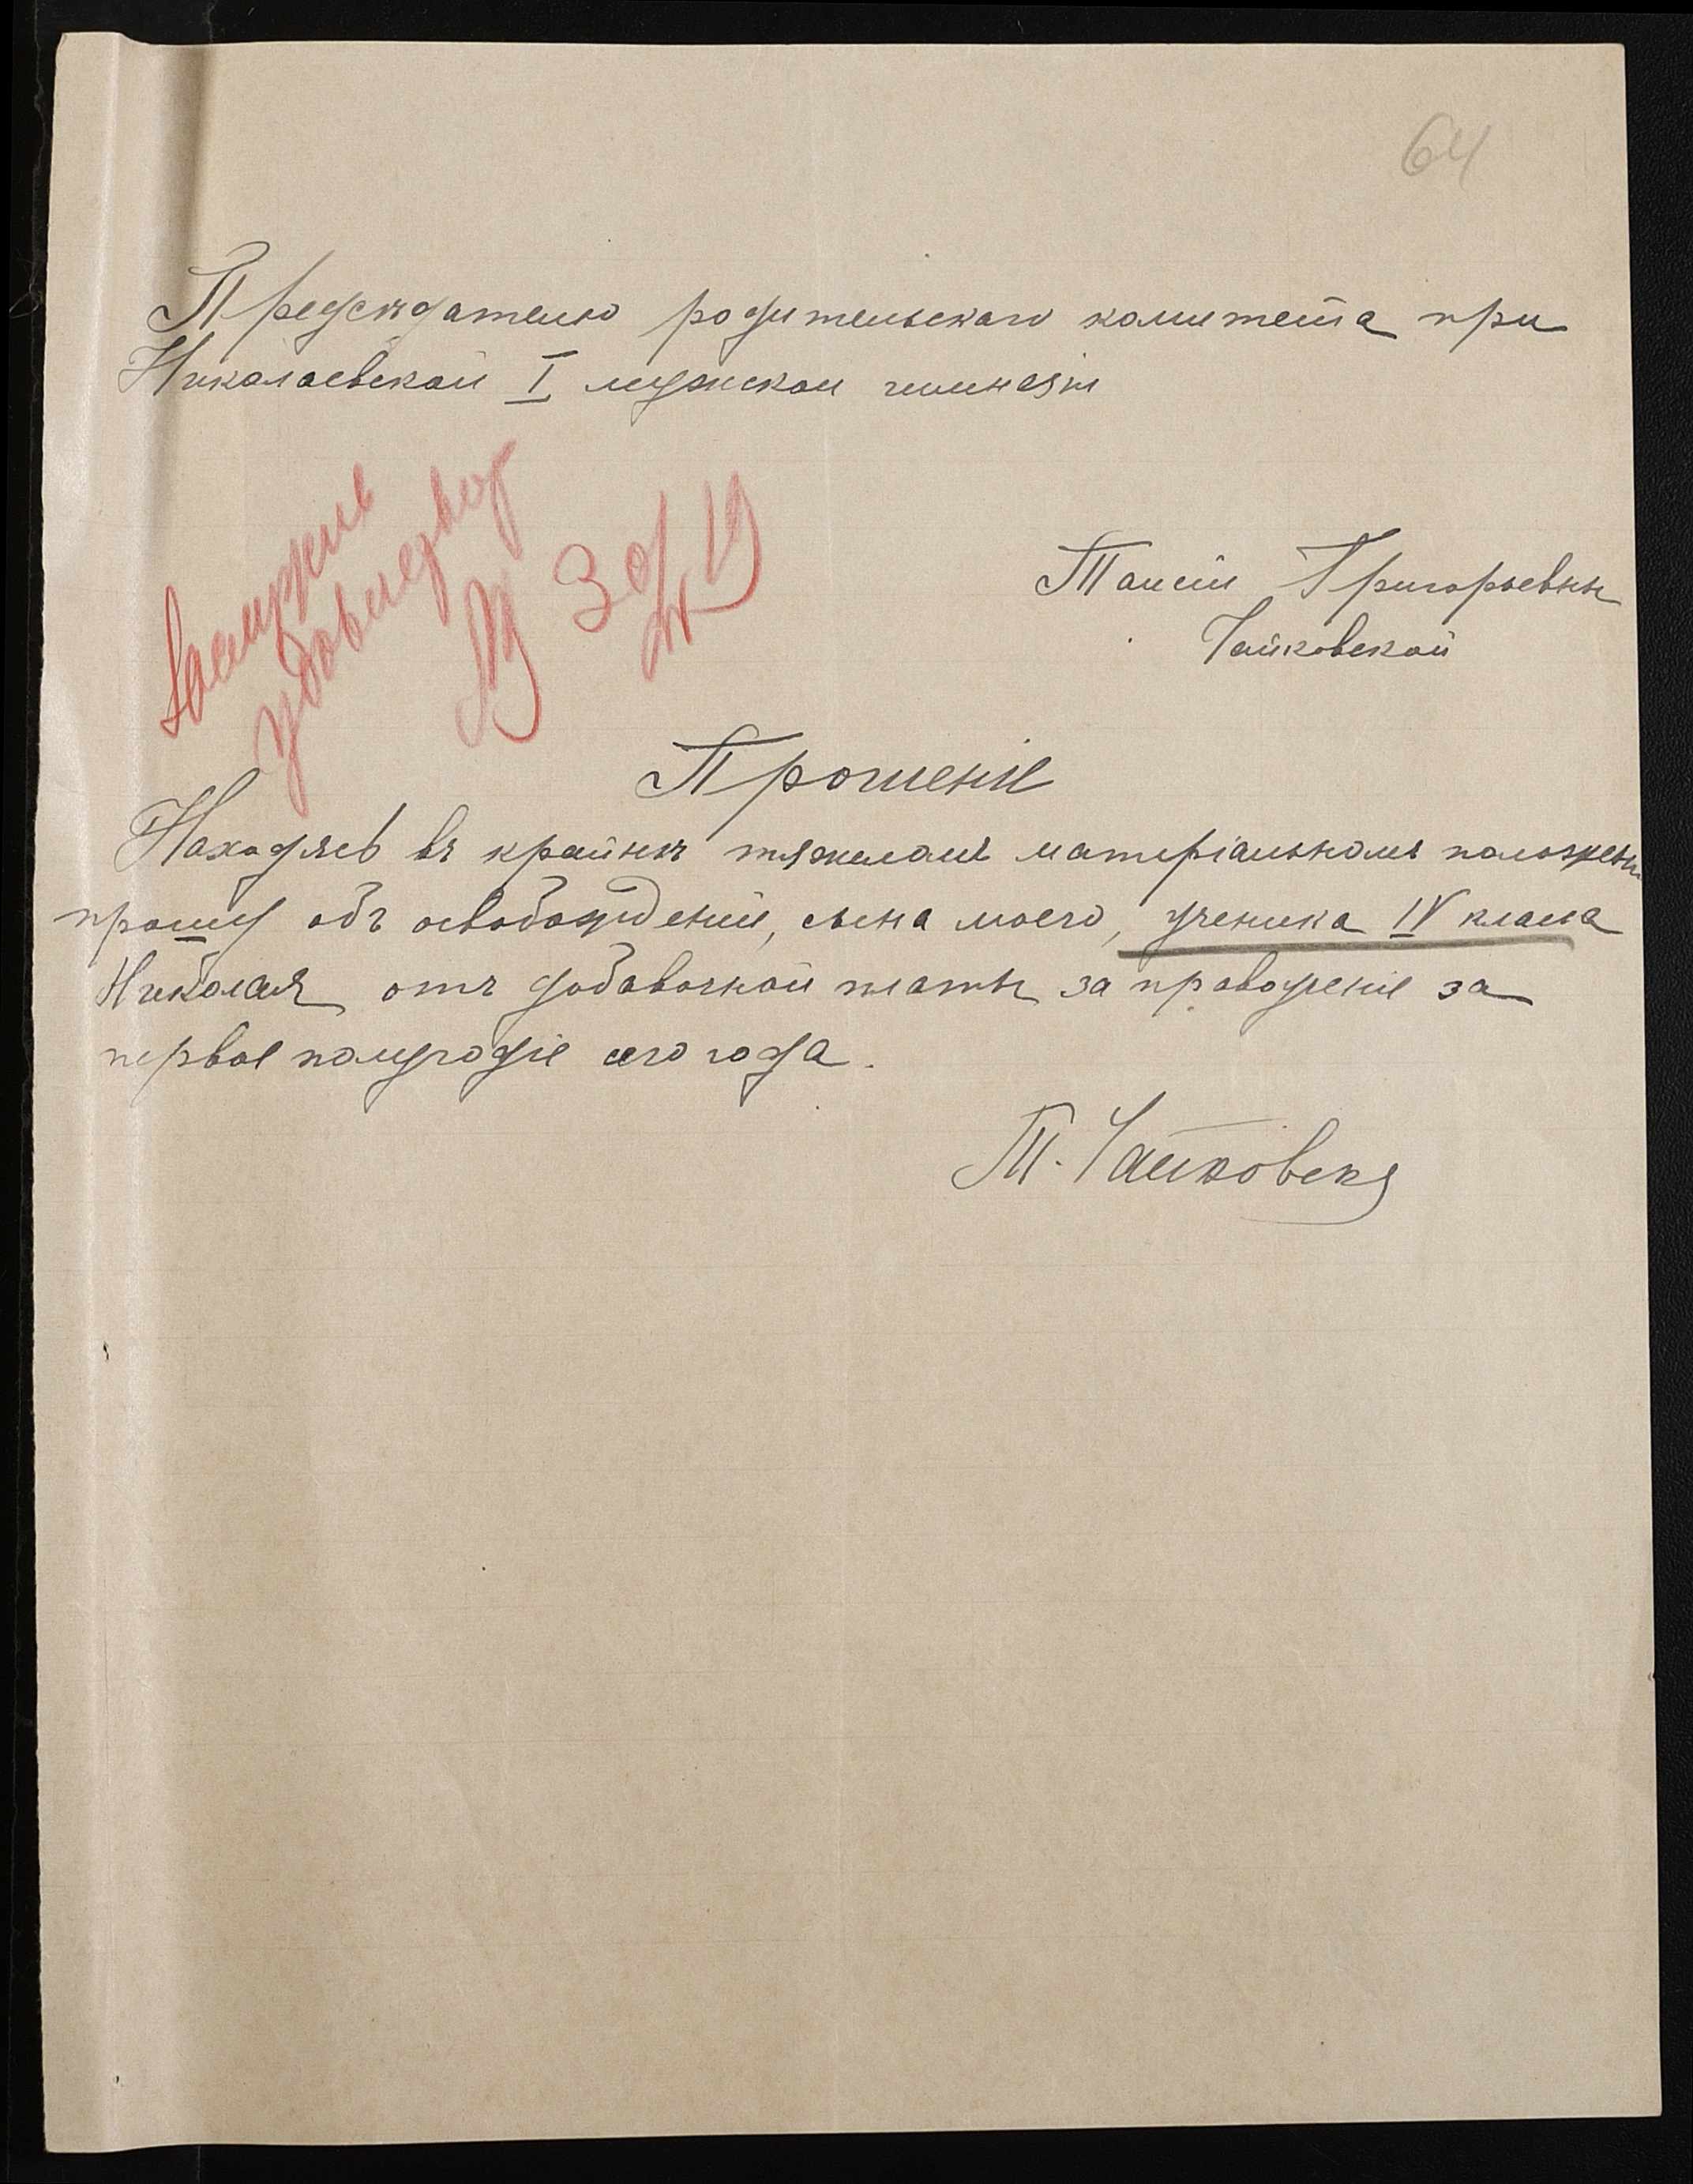 64
Предсѣдателю родительскаго комитета при
Николаевской I мужской гимназіи
Таисіи Григорьевны
Чайковской
удовлетвор
30/IV 19
Прошеніе
Находясь въ крайнѣ тяжеломъ матеріальномъ положеніи
прошу объ освобожденіи, сына моего, ученика IV класса
Николая отъ добавочной платы за правоученіе за
первое полугодіе сего года.
Т. Чайковская